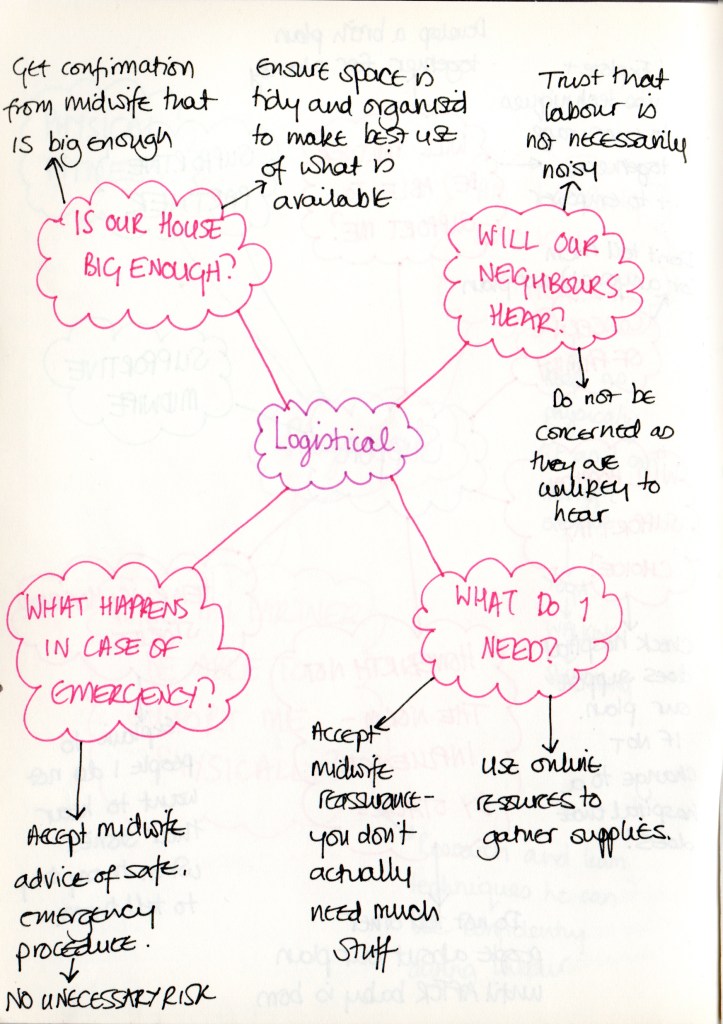 Get confirmation
from midwife that
is big enough
Ensure space is
tidy and organised
to make best use
of what is
available
Trust that
labour is
not necessarily
noisy
IS OUR HOUSE
BIG ENOUGH?
WILL OUR
NEIGHBOURS
HEAR?
Do not be
concerned as
they are
unlikely to
hear
Logistical
WHAT HAPPENS
IN CASE OF
EMERGENCY?
WHAT DO I
NEED?
Accept midwife
advice of safe
emergency
procedure.
NO UNECESSARY RISK
Accept
midwife
reassurance-
you don't
actually
need much
stuff
use online
resources to
gather supplies.